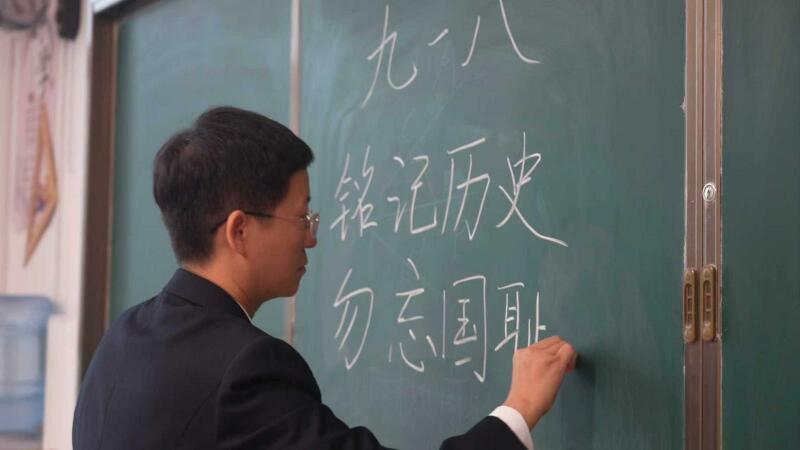 九一八
铭记历史
勿忘国耻